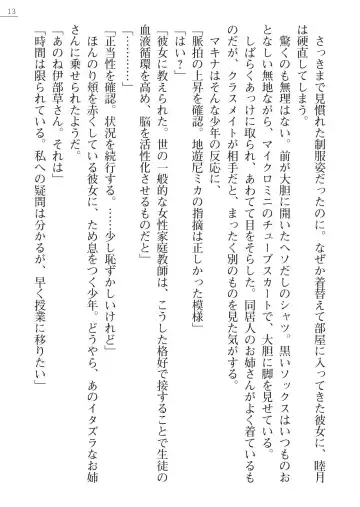 13
さっきまで見慣れた制服姿だったのに。なぜか着替えて部屋に入ってきた彼女に、睦月
は硬直してしまう。
驚くのも無理はない。前が大胆に開いたヘソだしのシャツ。黒いソックスはいつものお
となしい無地ながら、マイクロミニのチューブスカートで、大胆に脚を見せている。
しばらくあっけに取られ、あわてて目をそらした。同居人のお姉さんがよく着ているも
のだが、クラスメイトが相手だと、まったく別のものを見た気がする。
マキナはそんな少年の反応に、
「脈拍の上昇を確認。地遊尼ミカの指摘は正しかった模様」
「はい？」
「彼女に教えられた。世の一般的な女性家庭教師は、こうした格好で接することで生徒の
血液循環を高め、脳を活性化させるものだと」
「…………」
「正当性を確認。状況を続行する。……少し恥ずかしいけれど」
ほんのり頬を赤くしている彼女に、ため息をつく少年。どうやら、あのイタズラなお姉
さんに乗せられたようだ。
「あのね伊部草さん。それは」
「時間は限られている。私への疑問は分かるが、早く授業に移りたい」